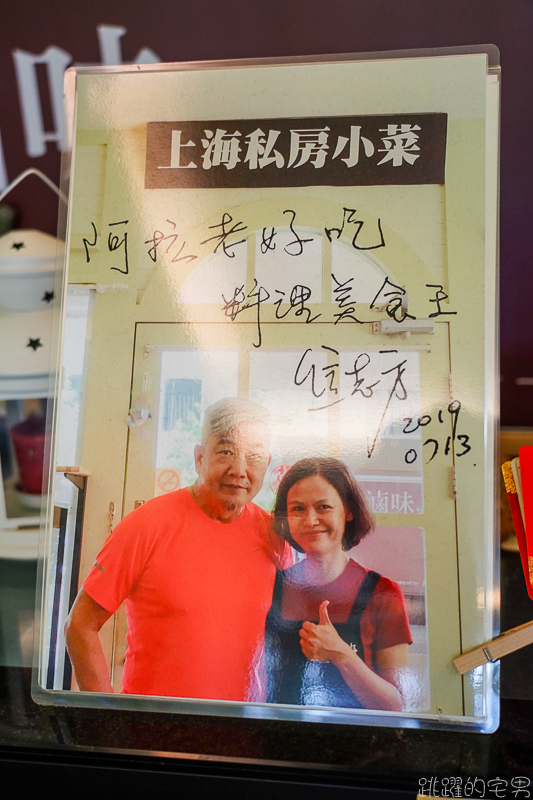 味
上海私房小菜
阿拉老好吃
料理美食王
焦志方
2019
0713
滷味
跳躍的宅男